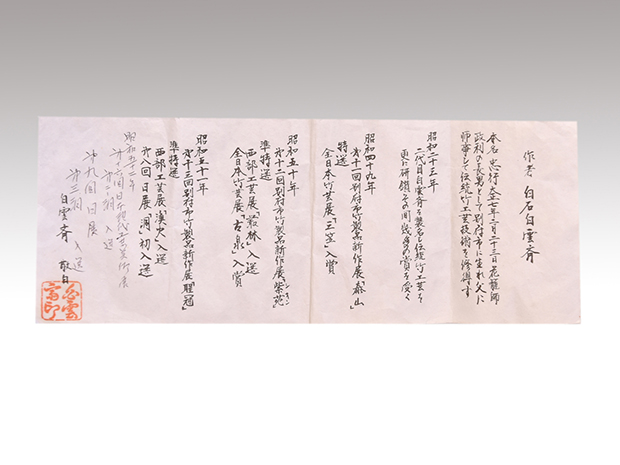 作者 白石白雲斉
本名 忠行 大正七年二月二十三日 花籠師
政利の長男として別府市に生れ父に
師事して伝統竹工芸技術を修得す
昭和二十三年
二代目白雲斉を襲名し伝統竹工芸を
更に研鑽その間幾多の賞を受く
昭和四十九年
第十一回別府市竹製品新作展「泰山」
特選
全日本竹芸展「三笠」入賞
昭和五十年
第十二回別府市竹製品新作展「紫苑」
準特選
西部工芸展「叢林」入選
全日本竹芸展「古泉」入賞
昭和五十一年
第十三回別府市竹製品新作展「聖冠」
準特選
西部工芸展「漢火」入選
第八回日展「凋」初入選
昭和五十二年
第十六回日本現代工芸美術展
入選
第九回日展 入選
白雲斉 敬白